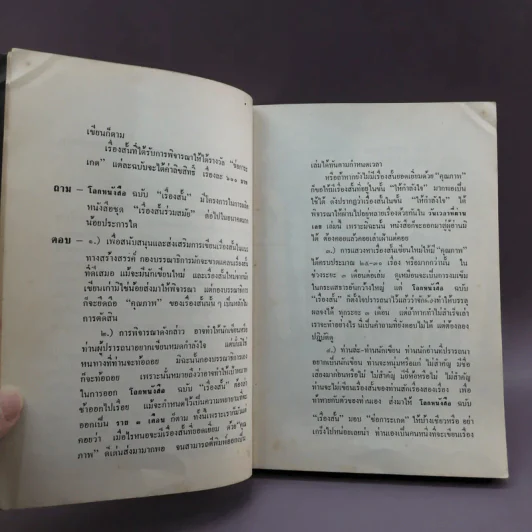 เขียนก็ตาม
เรื่องสั้นที่ได้รับการพิจารณาให้ได้รางวัล "ช่อการะ
เกด" แต่ละฉบับจะได้ค่าลิขสิทธิ์ เรื่องละ ๒๐๐ บาท
ถาม – โลกหนังสือ ฉบับ "เรื่องสั้น" มีโครงการในการผลิต
หนังสือชุด "เรื่องสั้นร่วมสมัย" ต่อไปในอนาคตมาก
น้อยประการใด
ตอบ – ๑.) เพื่อสนับสนุนและส่งเสริมการเขียนเรื่องสั้นในแนว
ทางสร้างสรรค์ กองบรรณาธิการมักจะขาดแคลนเรื่องสั้น
ที่ดีเสมอ แม้จะมีนักเขียนใหม่ และเรื่องสั้นใหม่จากนัก
เขียนเก่ามิใช่น้อยส่งมาให้พิจารณา แต่กองบรรณาธิการ
ก็จะยึดถือ "คุณภาพ" ของเรื่องสั้นนั้น ๆ เป็นหลักใน
การตัดสิน
๒.) การพิจารณาดังกล่าว อาจทำให้นักเขียน
ท่านผู้ปรารถนาอยากเขียนหมดกำลังใจ แต่นั่นไม่ใช่
หนทางที่ท่านจะท้อถอย มิฉะนั้นกองบรรณาธิการ
ก็จะท้อถอย เพราะนั่นหมายถึงว่าอาจทำให้เป้าหมาย
ในการออก โลกหนังสือ ฉบับ "เรื่องสั้น" ต้องล่า
ช้าออกไปเรื่อย แม้จะกำหนดไว้เป็นความพยายามที่จะ
ออกเป็น ราย ๓ เดือน ก็ตาม ทั้งนี้เพราะเรามัวแต่
คอยว่า เมื่อไรหนอจะมีเรื่องสั้นที่ยอดเยี่ยม ด้วย "คุณ
ภาพ" ดีเด่นส่งมามากพอ จนสามารถตีพิมพ์ออกเป็น
เล่มได้ทันตามกำหนดเวลา
หรือถ้าหากยังไม่มีเรื่องสั้นยอดเยี่ยมด้วย "คุณภาพ"
ก็ขอให้มีเรื่องสั้นที่อยู่ในขั้น "ให้กำลังใจ" มากพอเป็น
ใช้ได้ ดังปรากฏว่าเรื่องสั้นในขั้น "ให้กำลังใจ" ได้
พิจารณาให้ผ่านไปอยู่หลายเรื่องด้วยกันใน วันเวลาที่ผ่าน
เลย เล่มนี้ เพราะมิฉะนั้น หนังสือก็จะออกมาสู่ผู้อ่านมิ
ได้ ต้องคอยแล้วคอยเล่าด้านแต่คอย
๓.) การแสวงหาเรื่องสั้นเขียนใหม่ให้มี "คุณภาพ"
ได้ครบประมาณ ๒๕-๓๐ เรื่อง หรือมากกว่านั้น ใน
ช่วงระยะ ๓ เดือนต่อเล่ม ดูเหมือนจะเป็นการงมเข็ม
ในกระแสธารอันกว้างใหญ่ แต่ โลกหนังสือ ฉบับ
"เรื่องสั้น" ก็ตั้งใจปรารถนาไว้แล้วว่าจักต้องทำให้บรรลุ
ผลจงได้ ทุกระยะ ๓ เดือน แต่ถ้าหากทำไม่สำเร็จเล่า
เราจะทำอย่างไร นี่เป็นคำถามที่ยังตอบไม่ได้ แต่ต้องลอง
ปฏิบัติดู
๔.) ท่านล่ะ-ท่านนักเขียน ท่านนักอ่านที่ปรารถนา
อยากเป็นนักเขียน ท่านจะเป็นใครก็ตาม ไม่สำคัญ มีชื่อ
เสียงมาก่อนหรือไม่ ไม่สำคัญ มีชื่อหรือไม่ ไม่สำคัญ
ท่านจะไม่เขียนเรื่องสั้นของท่านสักเรื่องสองเรื่อง เพื่อ
ท้าทายกับตัวของท่านเอง ส่งมาให้ โลกหนังสือ ฉบับ
"เรื่องสั้น" มอบ "ช่อการะเกด" ให้บ้างเชียวหรือ อย่า
เกร็งไปหน่อยเลยน่า ท่านเองเป็นคนหนึ่งที่จะเขียนเรื่อง